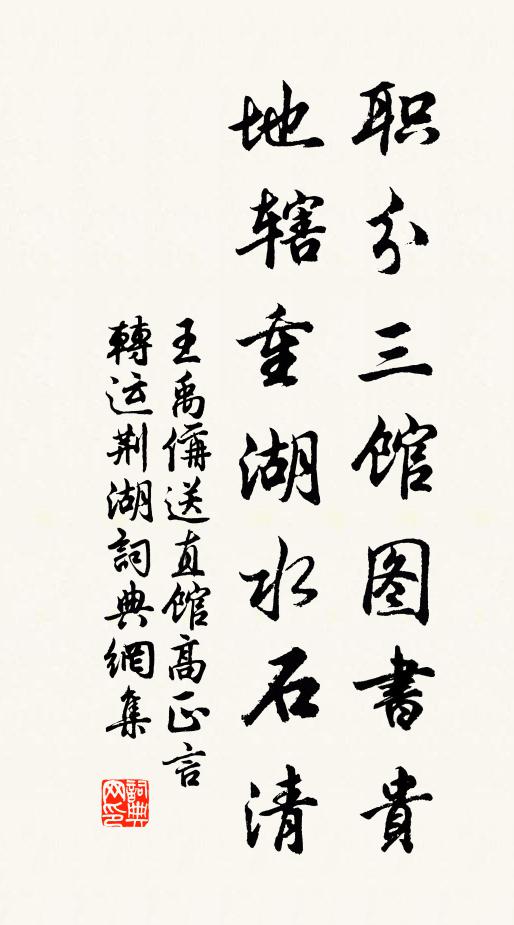 职分三馆图書貴
地辖重湖水石清
王禹偁送直馆高正言
轉运荆湖詞典網集
詞典网印